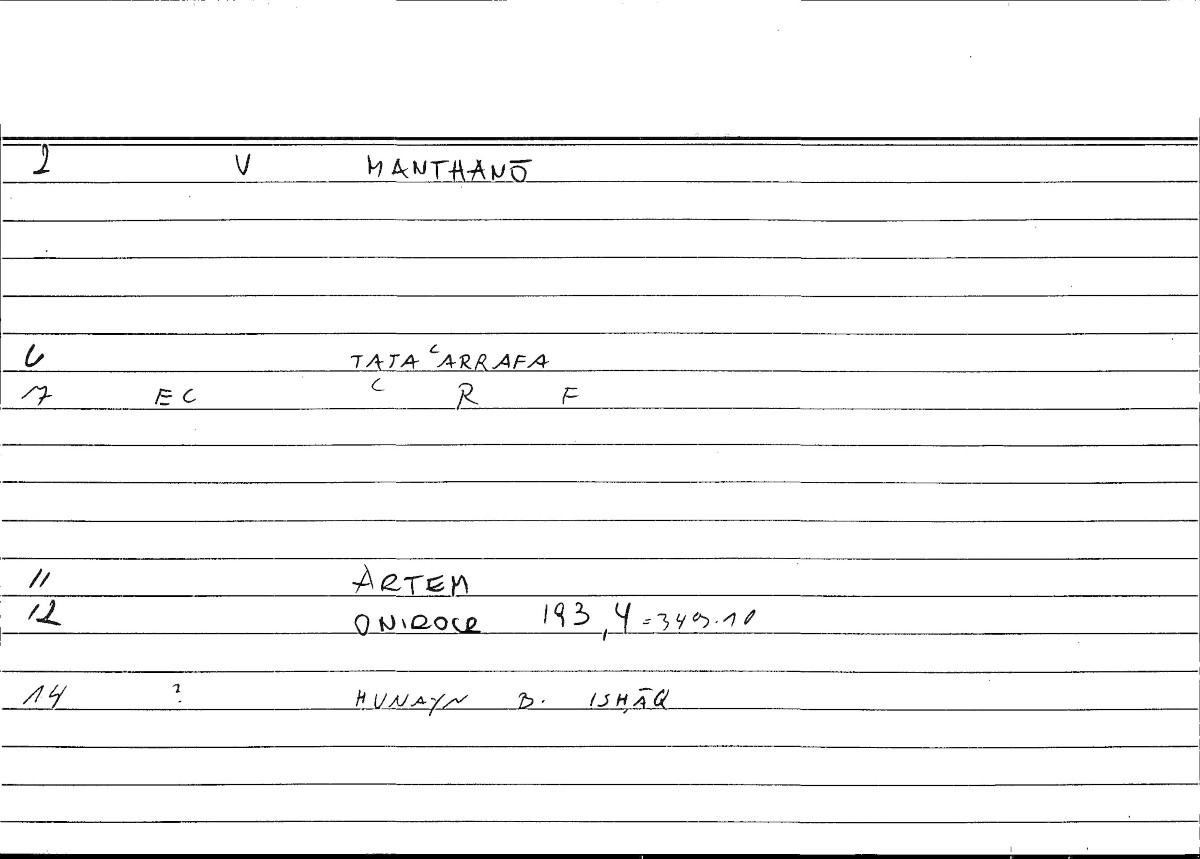 2 V MANTHANŌ
6 TATAʿARRAFA
17 EC ʿ R F
11 ARTEM
12 ONIROCR 193,4 = 349.10
14 ? HUNAYN B. ISḤĀQ